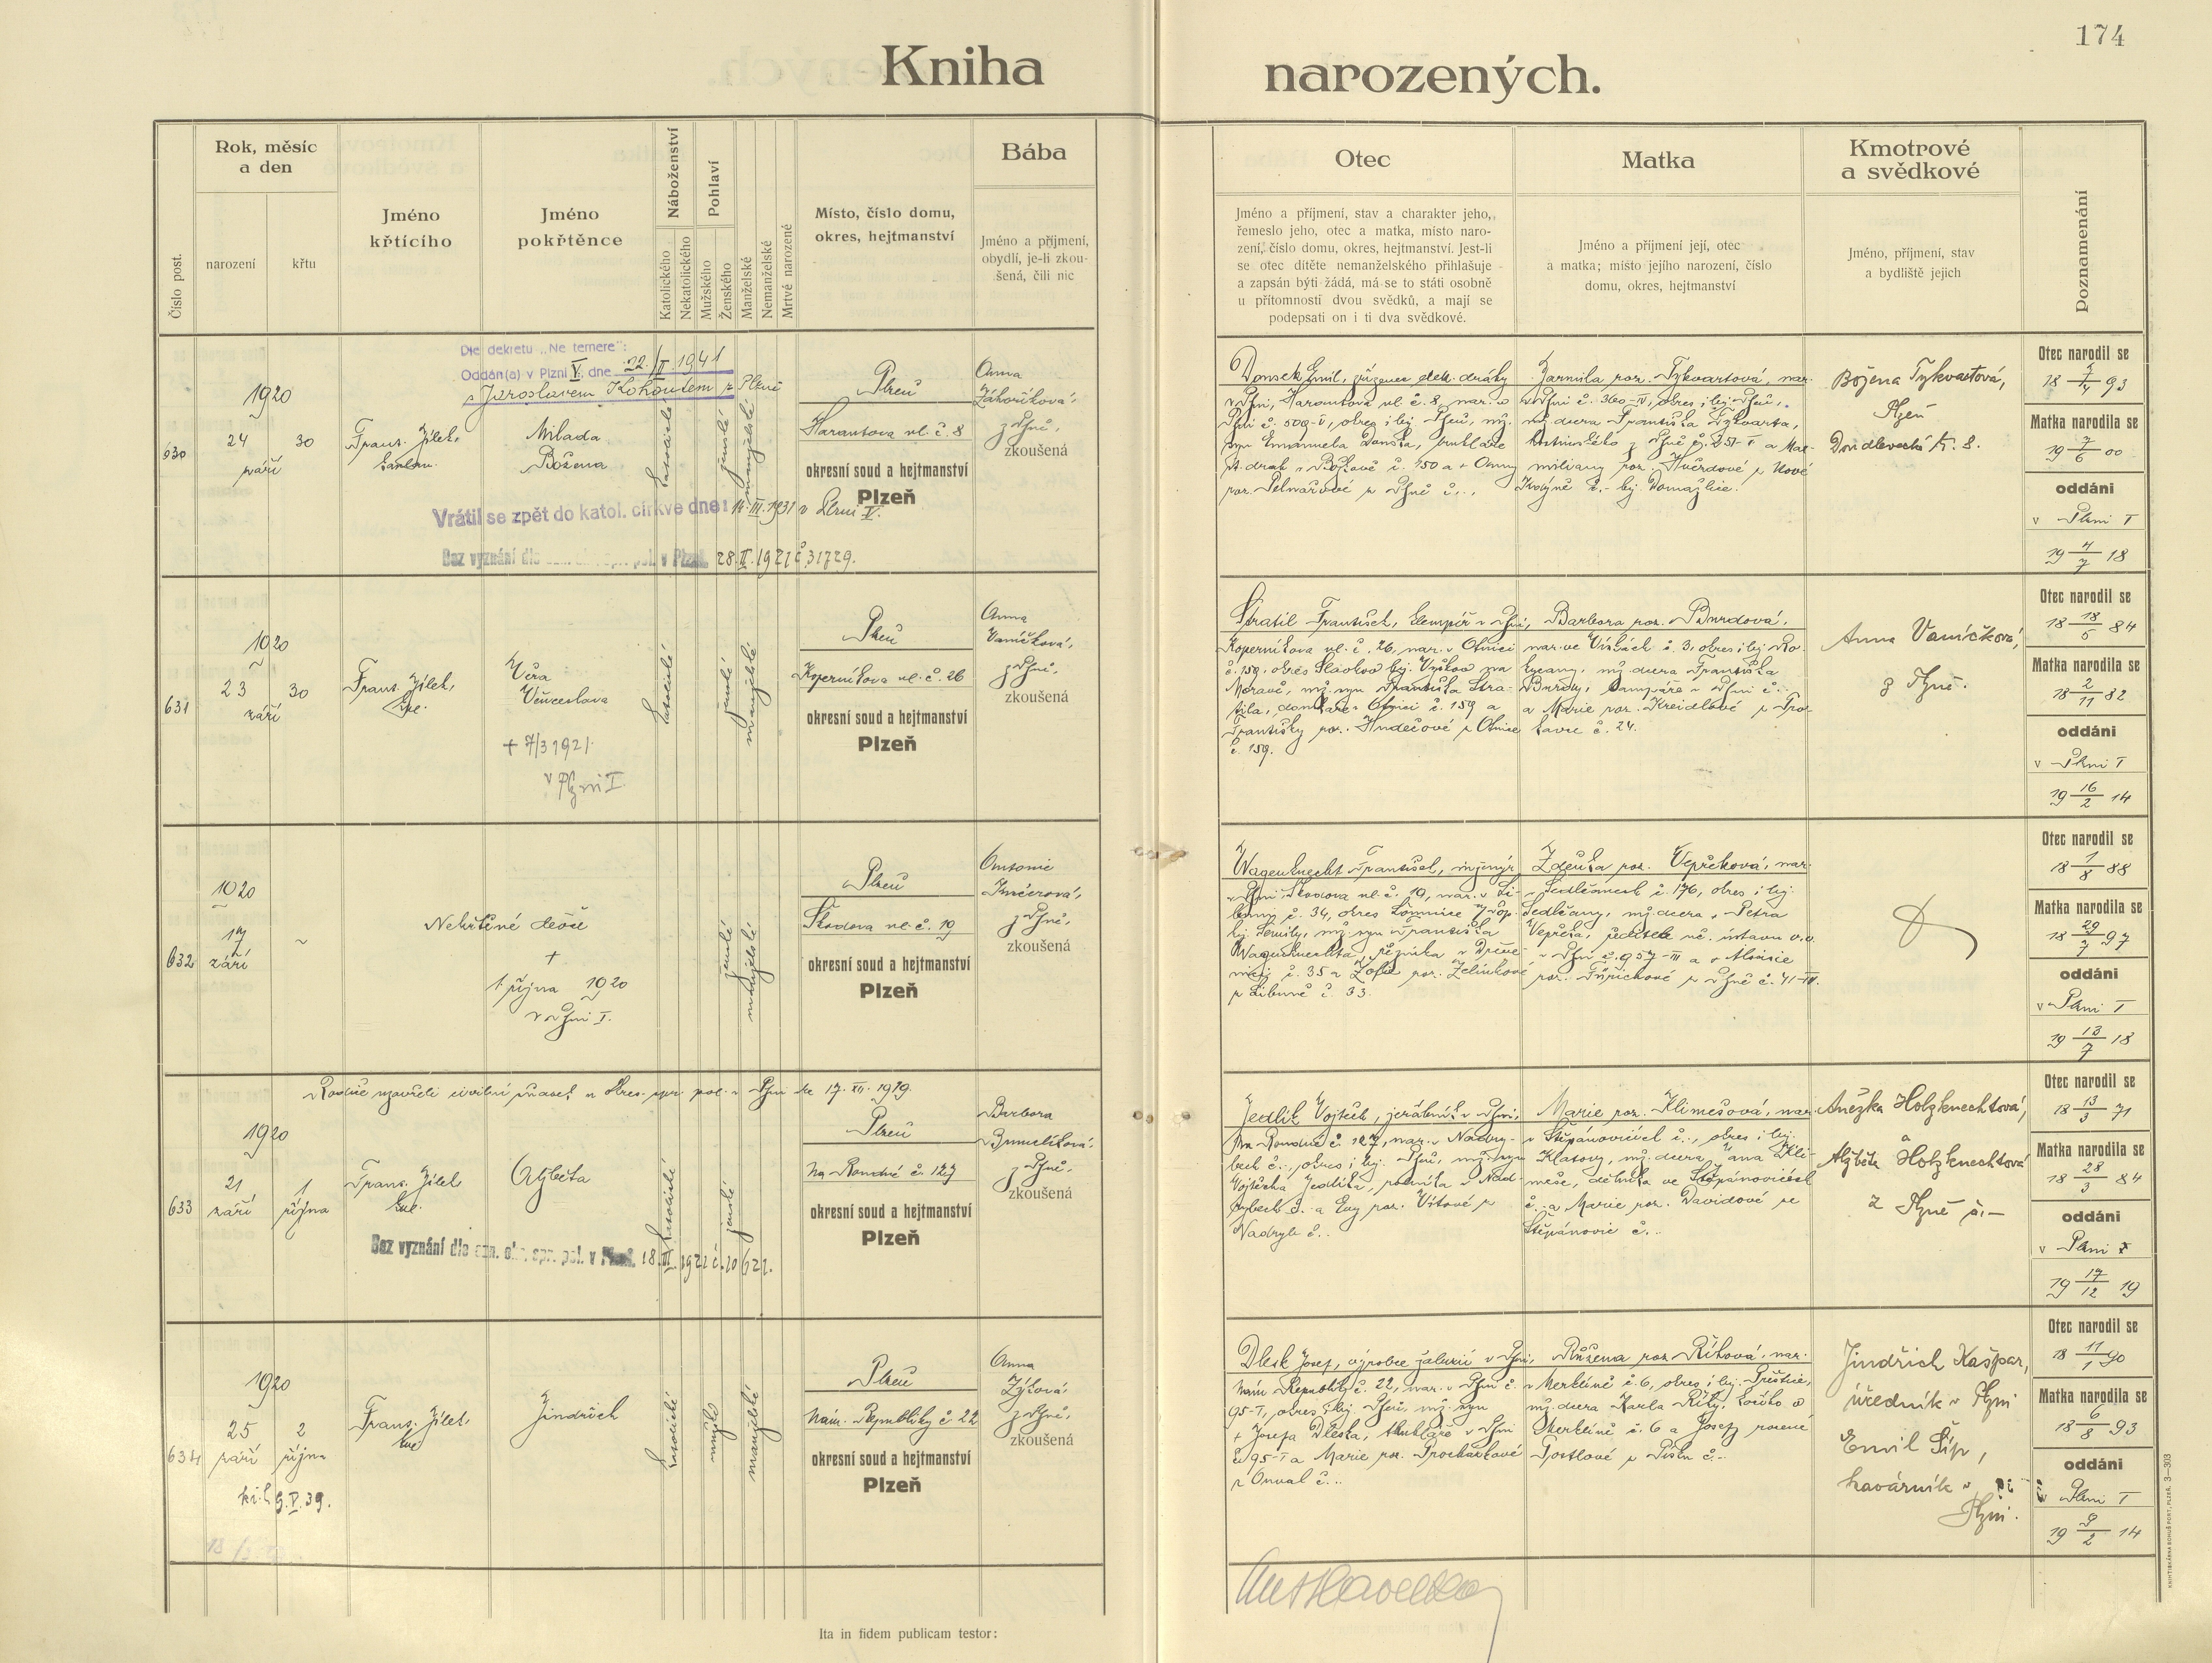 174
Kniha narozených.
Číslo post.
Rok, měsíc
a den
narození
křtu
Jméno
křtícího
Jméno
pokřtěnce
Náboženství
Katolického
Nekatolického
Pohlaví
Mužského
Ženského
Manželské
Nemanželské
Mrtvé narozené
Místo, číslo domu,
okres, hejtmanství
Bába
Jméno a příjmení,
obydlí, je-li zkou-
šená, čili nic
Otec
Jméno a příjmení, stav a charakter jeho,
řemeslo jeho, otec a matka, místo naro-
zení, číslo domu, okres, hejtmanství. Jest-li
se otec dítěte nemanželského přihlašuje
a zapsán býti žádá, má se to státi osobně
u přítomnosti dvou svědků, a mají se
podepsati on i ti dva svědkové.
Matka
Jméno a příjmení její, otec
a matka; místo jejího narození, číslo
domu, okres, hejtmanství
Kmotrové
a svědkové
Jméno, příjmení, stav
a bydliště jejich
Poznamenání
Dle dekretu „Ne temere":
Oddán(a) v Plzni V. dne 22./II. 1941
s Jaroslavem Kohoutem z Plzně
630
1920
24
září
30
Frant. Jílek,
kaplan.
Milada
Božena
katolické
ženské
manželské
Plzeň
Harantova ul. č. 8
okresní soud a hejtmanství
Plzeň
Anna
Záhoříková,
z Plzně,
zkoušená
Vrátil se zpět do katol. církve dne: 14. III. 1931 v Plzni V.
Bez vyznání dle spr. pol. v Plzni 28. II. 1921 č. 31729.
Donsek Emil, zřízenec elek. dráhy
v Plzni, Harantova ul. č. 8, nar. v
Plzni č. 509-V, okres i hej. Plzeň, mž.
syn Emanuela Donska,
st. drah v Božkově č. 150 a + Anny
roz. z Plzně č. -.
Jarmila roz. Tykvartová, nar.
v Plzni č. 360-IV, okres i hej. Plzeň,
mž. dcera Františka Tykvarta,
z Plzně č. 251-I a Maxi-
miliany roz. z Nové
č. - hej. Domažlice.
Božena Tykvartová,
Plzeň
Doudlevecká tř. 8.
Otec narodil se
93
Matka narodila se
19 7/6 00
oddáni
v Plzni I
19 4/7 18
631
1920
23
září
30
Frant. Jílek,
kpl.
Věra
Věnceslava
+ 7/3 1921
v Plzni I
katolické
ženské
manželské
Plzeň
Koperníkova ul. č. 26
okresní soud a hejtmanství
Plzeň
Anna
Vaníčková,
z Plzně,
zkoušená
Stratil František, klempíř v Plzni,
Koperníkova ul. č. 26, nar. v Otnici
č. 159, okres Slavkov hej. Vyškov na
Moravě, mž. syn Františka Stra-
tila, domkáře v Otnici č. 159 a
Františky roz. Hudečové z Otnice
č. 159.
Barbora roz. Burdová,
nar. ve č. 3, okres i hej. Ro-
kycany, mž. dcera Františka
Burdy, v Plzni č. -
a Marie roz. Kreidlové z
č. 24.
Anna Vaníčková,
z Plzně.
Otec narodil se
18 18/5 84
Matka narodila se
18 2/11 82
oddáni
v Plzni I
19 16/2 14
632
1920
17
září
~
Nekřtěné děvče
+
1. října 1920
v Plzni I.
ženské
manželské
Plzeň
Škodova ul. č. 19
okresní soud a hejtmanství
Plzeň
Antonie
z Plzně,
zkoušená
Wagenknecht František, inženýr
v Plzni Škodova ul. č. 19, nar. v Li-
č. 34, okres Lomnice n/Pop.
hej. Semily, mž. syn Františka
Wagenknechta, řezníka v
č. 35 a Žofie roz. Zelinkové
z Libuně č. 33.
Zdeňka roz. Vepřeková, nar.
v Sedlčanech č. 176, okres i hej.
Sedlčany, mž. dcera + Petra
Vepřeka, ředitele uč. ústavu v. v.
v Plzni č. 957-III a + Aloisie
roz. z Plzně č. 41-IV.
Otec narodil se
18 1/8 88
Matka narodila se
18 29/7 97
oddáni
v Plzni I
19 13/7 18
Rodiče uzavřeli civilní sňatek u Okres. spr. pol. v Plzni dne 17. XII. 1919.
633
1920
21
září
1
října
Frant. Jílek
kpl.
Alžběta
katolické
ženské
Plzeň
Na Roudné č. 127
okresní soud a hejtmanství
Plzeň
Barbora
z Plzně,
zkoušená
Bez vyznání dle ozn. okr. spr. pol. v Plzni 18. III. 1921 č. 10621.
Jedlík Vojtěch, jeřábník v Plzni,
Na Roudné č. 127, nar. v Nadry-
bech č. -, okres i hej. Plzeň, mž. syn
Vojtěcha Jedlíka, rolníka v Nad-
rybech č. - a Evy roz. Vítové z
Nadryb č. -.
Marie roz. Klimešová, nar.
v Štěpánovicích č. -, okres i hej.
Klatovy, mž. dcera Jana Kli-
meše, dělníka ve Štěpánovicích
č. - a Marie roz. Davidové ze
Štěpánovic č. -.
Anežka Holzknechtová,
a
Alžběta Holzknechtová
z Plzně č. -
Otec narodil se
18 13/3 71
Matka narodila se
18 28/3 84
oddáni
v Plzni
19 17/12 19
634
1920
25
září
2
října
kř. l. 9. V. 39.
Frant. Jílek,
kpl.
Jindřich
katolické
mužské
manželské
Plzeň
Nám. Republiky č. 22
okresní soud a hejtmanství
Plzeň
Anna
Zýková,
z Plzně,
zkoušená
Dlesk Josef, výrobce žaluzií v Plzni,
Nám. Republiky č. 22, nar. v Plzni č.
95-I, okres i hej. Plzeň, mž. syn
+ Josefa Dleska, truhláře v Plzni
č. 95-I a Marie roz. Procházkové
z Ouval č. -.
Růžena roz. Říhová, nar.
v Merklíně č. 6, okres i hej. Přeštice,
mž. dcera Karla Říhy, v
Merklíně č. 6 a Josefy rozené
Postlové z č. -
Jindřich Kašpar,
úředník v Plzni
Emil Šíp,
kavárník v
Plzni.
Otec narodil se
18 11/1 90
Matka narodila se
18 6/8 93
oddáni
v Plzni I
19 9/2 14
Ita in fidem publicam testor:
KNIHTISKÁRNA BOHUŠ PORT, PLZEŇ. 3—303